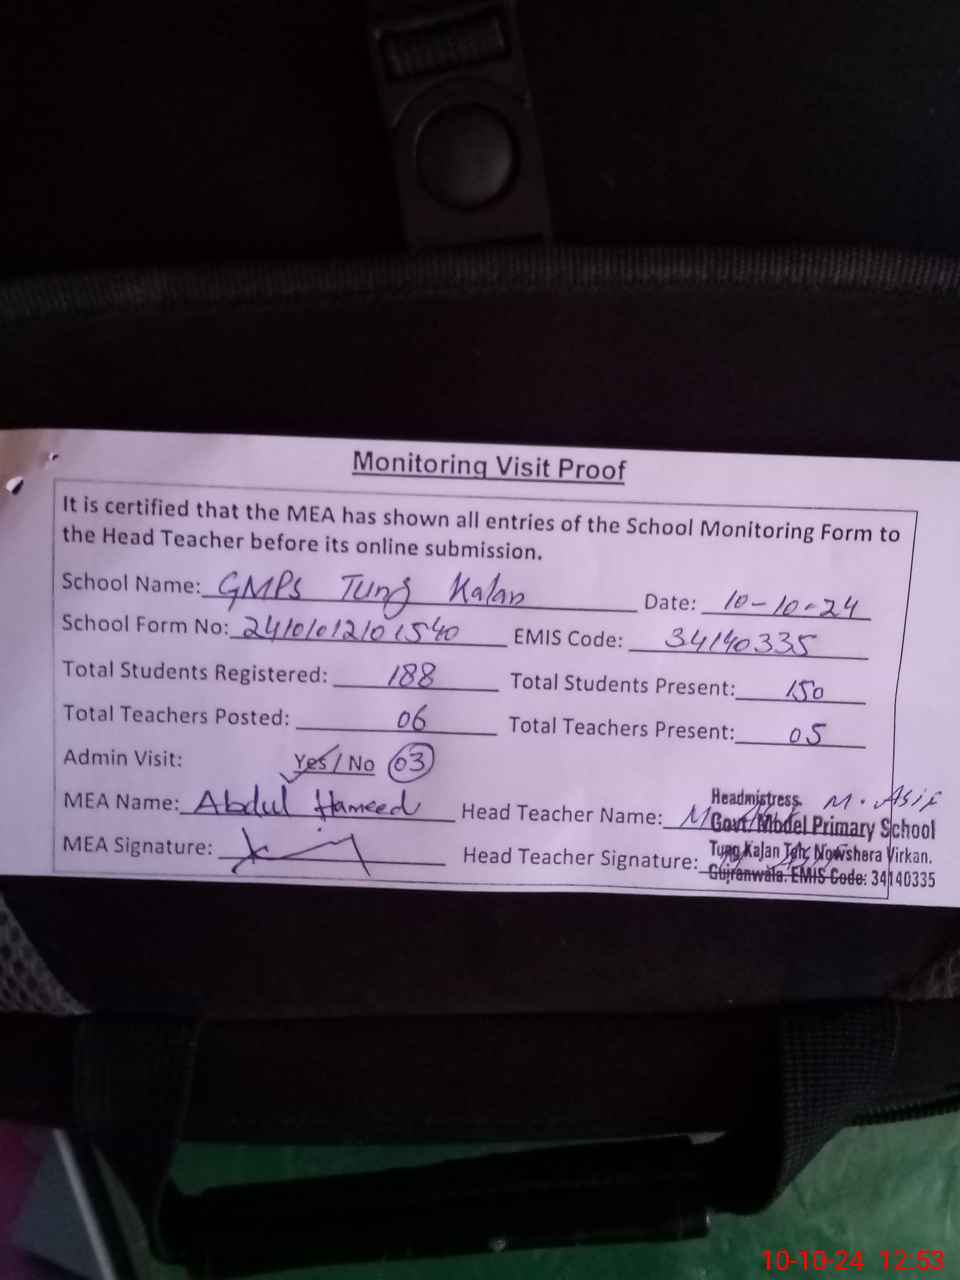 Monitoring Visit Proof
It is certified that the MEA has shown all entries of the School Monitoring Form to
the Head Teacher before its online submission.
School Name: GMPS Tung Kalan Date: 10-10-24
School Form No: 24101012101540 EMIS Code: 34140335
Total Students Registered: 188 Total Students Present: 150
Total Teachers Posted: 06 Total Teachers Present: 05
Admin Visit: Yes / No 03
MEA Name: Abdul Hameed Head Teacher Name: M. Asif
MEA Signature: Head Teacher Signature:
Headmistress
Govt. Model Primary School
Tung Kalan Teh: Nowshera Virkan.
Gujranwala. EMIS Code: 34140335
10-10-24 12:53